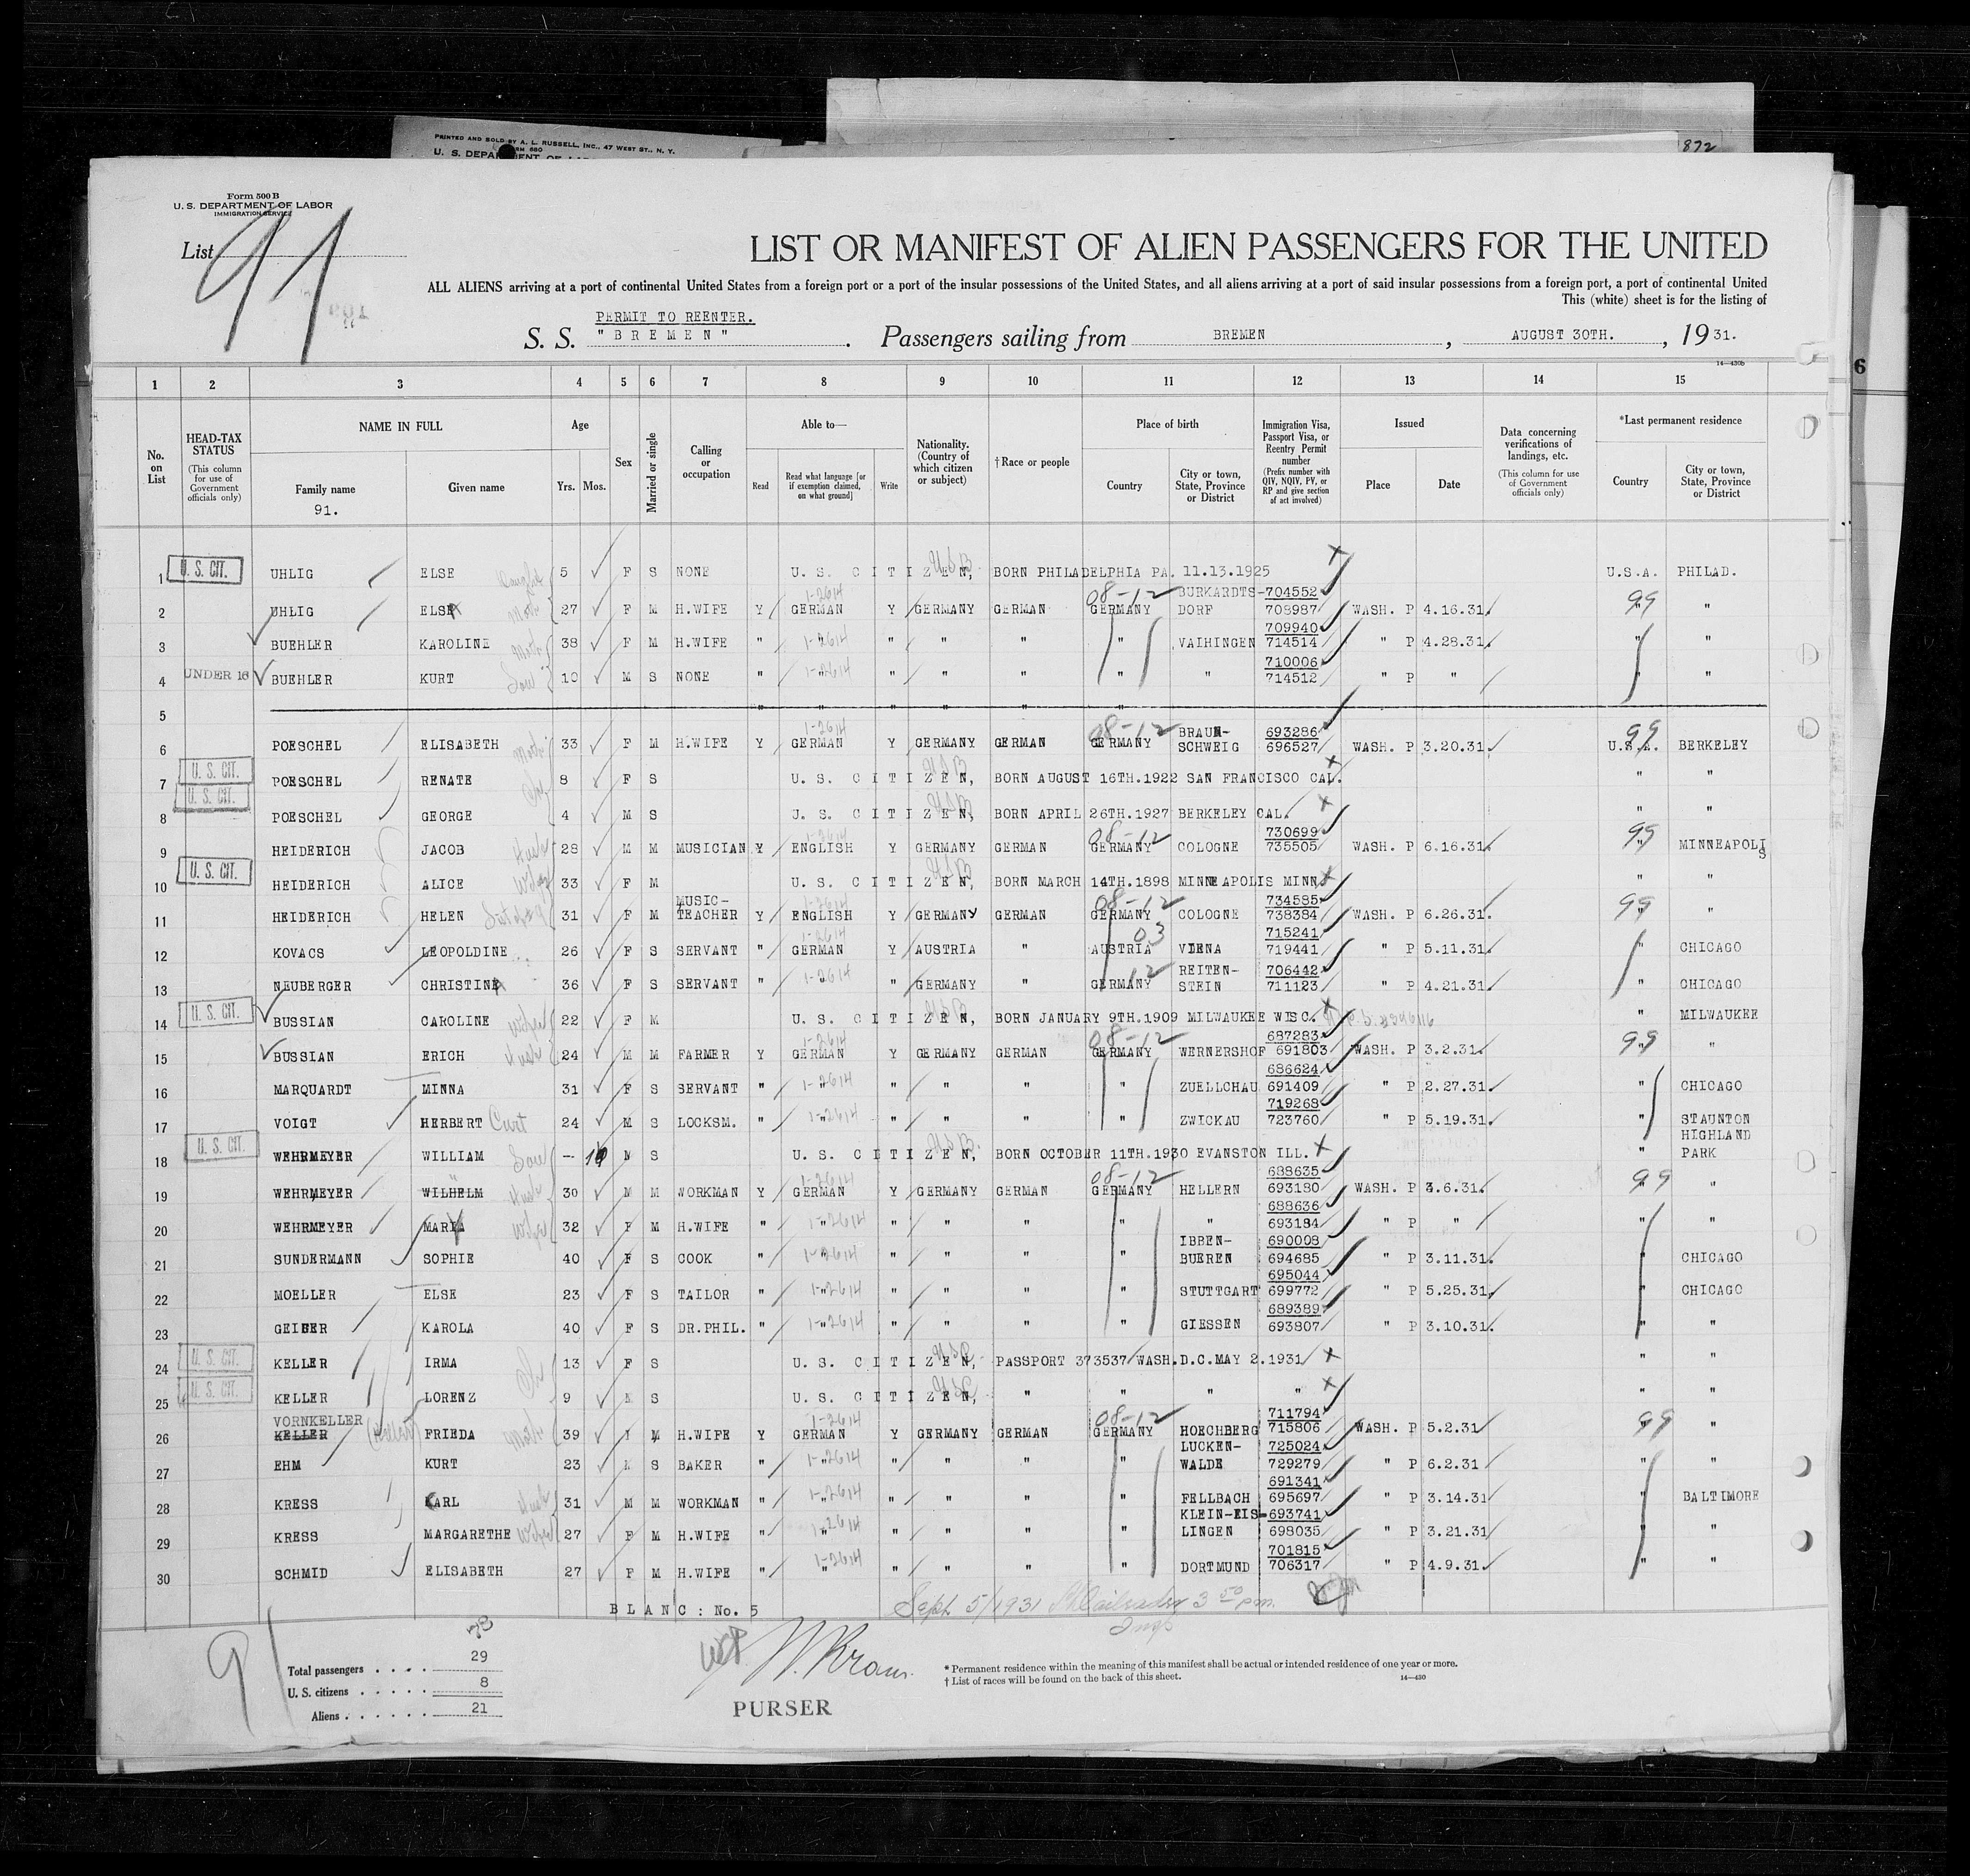 PRINTED AND SOLD BY A. L. RUSSELL, INC., 47 WEST ST., N. Y.
872
Form 500 B
U. S. DEPARTMENT OF LABOR
IMMIGRATION SERVICE
List 91
LIST OR MANIFEST OF ALIEN PASSENGERS FOR THE UNITED
ALL ALIENS arriving at a port of continental United States from a foreign port or a port of the insular possessions of the United States, and all aliens arriving at a port of said insular possessions from a foreign port, a port of continental United
This (white) sheet is for the listing of
PERMIT TO REENTER.
S. S. "BREMEN". Passengers sailing from BREMEN, AUGUST 30TH., 1931.
14—430b
1 2 3 4 5 6 7 8 9 10 11 12 13 14 15
No. on List
HEAD-TAX STATUS (This column for use of Government officials only)
NAME IN FULL
Family name
91.
Given name
Age
Yrs. Mos.
Sex
Married or single
Calling or occupation
Able to—
Read
Read what language [or if exemption claimed, on what ground]
Write
Nationality. (Country of which citizen or subject)
†Race or people
Place of birth
Country
City or town, State, Province or District
Immigration Visa, Passport Visa, or Reentry Permit number (Prefix number with QIV, NQIV, PV, or RP and give section of act involved)
Issued
Place
Date
Data concerning verifications of landings, etc. (This column for use of Government officials only)
*Last permanent residence
Country
City or town, State, Province or District
1 U. S. CIT. UHLIG ELSE 5 F S NONE U. S. CITIZEN, BORN PHILADELPHIA PA. 11.13.1925 U.S.A. PHILAD.
2 UHLIG ELSE 27 F M H.WIFE Y GERMAN Y GERMANY GERMAN GERMANY BURKARDTS-DORF 704552 708987 WASH. P 4.16.31. " "
3 BUEHLER KAROLINE 38 F M H.WIFE " " " " " " VAIHINGEN 709940 714514 " P 4.28.31. " "
4 UNDER 16 BUEHLER KURT 10 M S NONE " " " " " " " 710006 714512 " P " " "
5 " " " " " "
6 POESCHEL ELISABETH 33 F M H.WIFE Y GERMAN Y GERMANY GERMAN GERMANY BRAUN-SCHWEIG 693286 696527 WASH. P 3.20.31. U.S.A. BERKELEY
7 U. S. CIT. POESCHEL RENATE 8 F S U. S. CITIZEN, BORN AUGUST 16TH.1922 SAN FRANCISCO CAL. " "
8 U. S. CIT. POESCHEL GEORGE 4 M S U. S. CITIZEN, BORN APRIL 26TH.1927 BERKELEY CAL. " "
9 HEIDERICH JACOB 28 M M MUSICIAN Y ENGLISH Y GERMANY GERMAN GERMANY COLOGNE 730699 735505 WASH. P 6.16.31. " MINNEAPOLIS
10 U. S. CIT. HEIDERICH ALICE 33 F M U. S. CITIZEN, BORN MARCH 14TH.1898 MINNEAPOLIS MINN. " "
11 HEIDERICH HELEN 31 F M MUSIC-TEACHER Y ENGLISH Y GERMANY GERMAN GERMANY COLOGNE 734585 738384 WASH. P 6.26.31. " "
12 KOVACS LEOPOLDINE 26 F S SERVANT " GERMAN Y AUSTRIA " AUSTRIA VIENA 715241 719441 " P 5.11.31. " CHICAGO
13 NEUBERGER CHRISTINE 36 F S SERVANT " " " GERMANY " GERMANY REITEN-STEIN 706442 711123 " P 4.21.31. " CHICAGO
14 U. S. CIT. BUSSIAN CAROLINE 22 F M U. S. CITIZEN, BORN JANUARY 9TH.1909 MILWAUKEE WISC. " MILWAUKEE
15 BUSSIAN ERICH 24 M M FARMER Y GERMAN Y GERMANY GERMAN GERMANY WERNERSHOF 687283 691803 WASH. P 3.2.31. " "
16 MARQUARDT MINNA 31 F S SERVANT " " " " " " ZUELLCHAU 686624 691409 " P 2.27.31. " CHICAGO
17 VOIGT HERBERT Curt 24 M S LOCKSM. " " " " " " ZWICKAU 719268 723760 " P 5.19.31. " STAUNTON
18 U. S. CIT. WEHRMEYER WILLIAM Son — 10 M S U. S. CITIZEN, BORN OCTOBER 11TH.1930 EVANSTON ILL. " HIGHLAND PARK
19 WEHRMEYER WILHELM 30 M M WORKMAN Y GERMAN Y GERMANY GERMAN GERMANY HELLERN 688635 693180 WASH. P 3.6.31. " "
20 WEHRMEYER MARIA 32 F M H.WIFE " " " " " " " 688636 693184 " P " " "
21 SUNDERMANN SOPHIE 40 F S COOK " " " " " " IBBEN-BUEREN 690008 694685 " P 3.11.31. " CHICAGO
22 MOELLER ELSE 23 F S TAILOR " " " " " " STUTTGART 695044 699772 " P 5.25.31. " CHICAGO
23 GEIGER KAROLA 40 F S DR.PHIL. " " " " " " GIESSEN 689389 693807 " P 3.10.31. " "
24 U. S. CIT. KELLER IRMA 13 F S U. S. CITIZEN, PASSPORT 373537 WASH.D.C.MAY 2.1931 " "
25 U. S. CIT. KELLER LORENZ 9 M S U. S. CITIZEN, " " " " " "
26 VORNKELLER KELLER FRIEDA 39 F M H.WIFE Y GERMAN Y GERMANY GERMAN GERMANY HOECHBERG 711794 715806 WASH. P 5.2.31 " "
27 EHM KURT 23 M S BAKER " " " " " " LUCKEN-WALDE 725024 729279 " P 6.2.31 " "
28 KRESS KARL 31 M M WORKMAN " " " " " " FELLBACH 691341 695697 " P 3.14.31 " BALTIMORE
29 KRESS MARGARETHE 27 F M H.WIFE " " " " " " KLEIN-EIS-LINGEN 693741 698035 " P 3.21.31 " "
30 SCHMID ELISABETH 27 F M H.WIFE " " " " " " DORTMUND 701815 706317 " P 4.9.31. " "
BLANC: No. 5
Sept. 5/1931 3 50 pm.
91
Total passengers . . . . 29
U. S. citizens . . . . . 8
Aliens . . . . . . 21
PURSER
* Permanent residence within the meaning of this manifest shall be actual or intended residence of one year or more.
† List of races will be found on the back of this sheet.
14—430